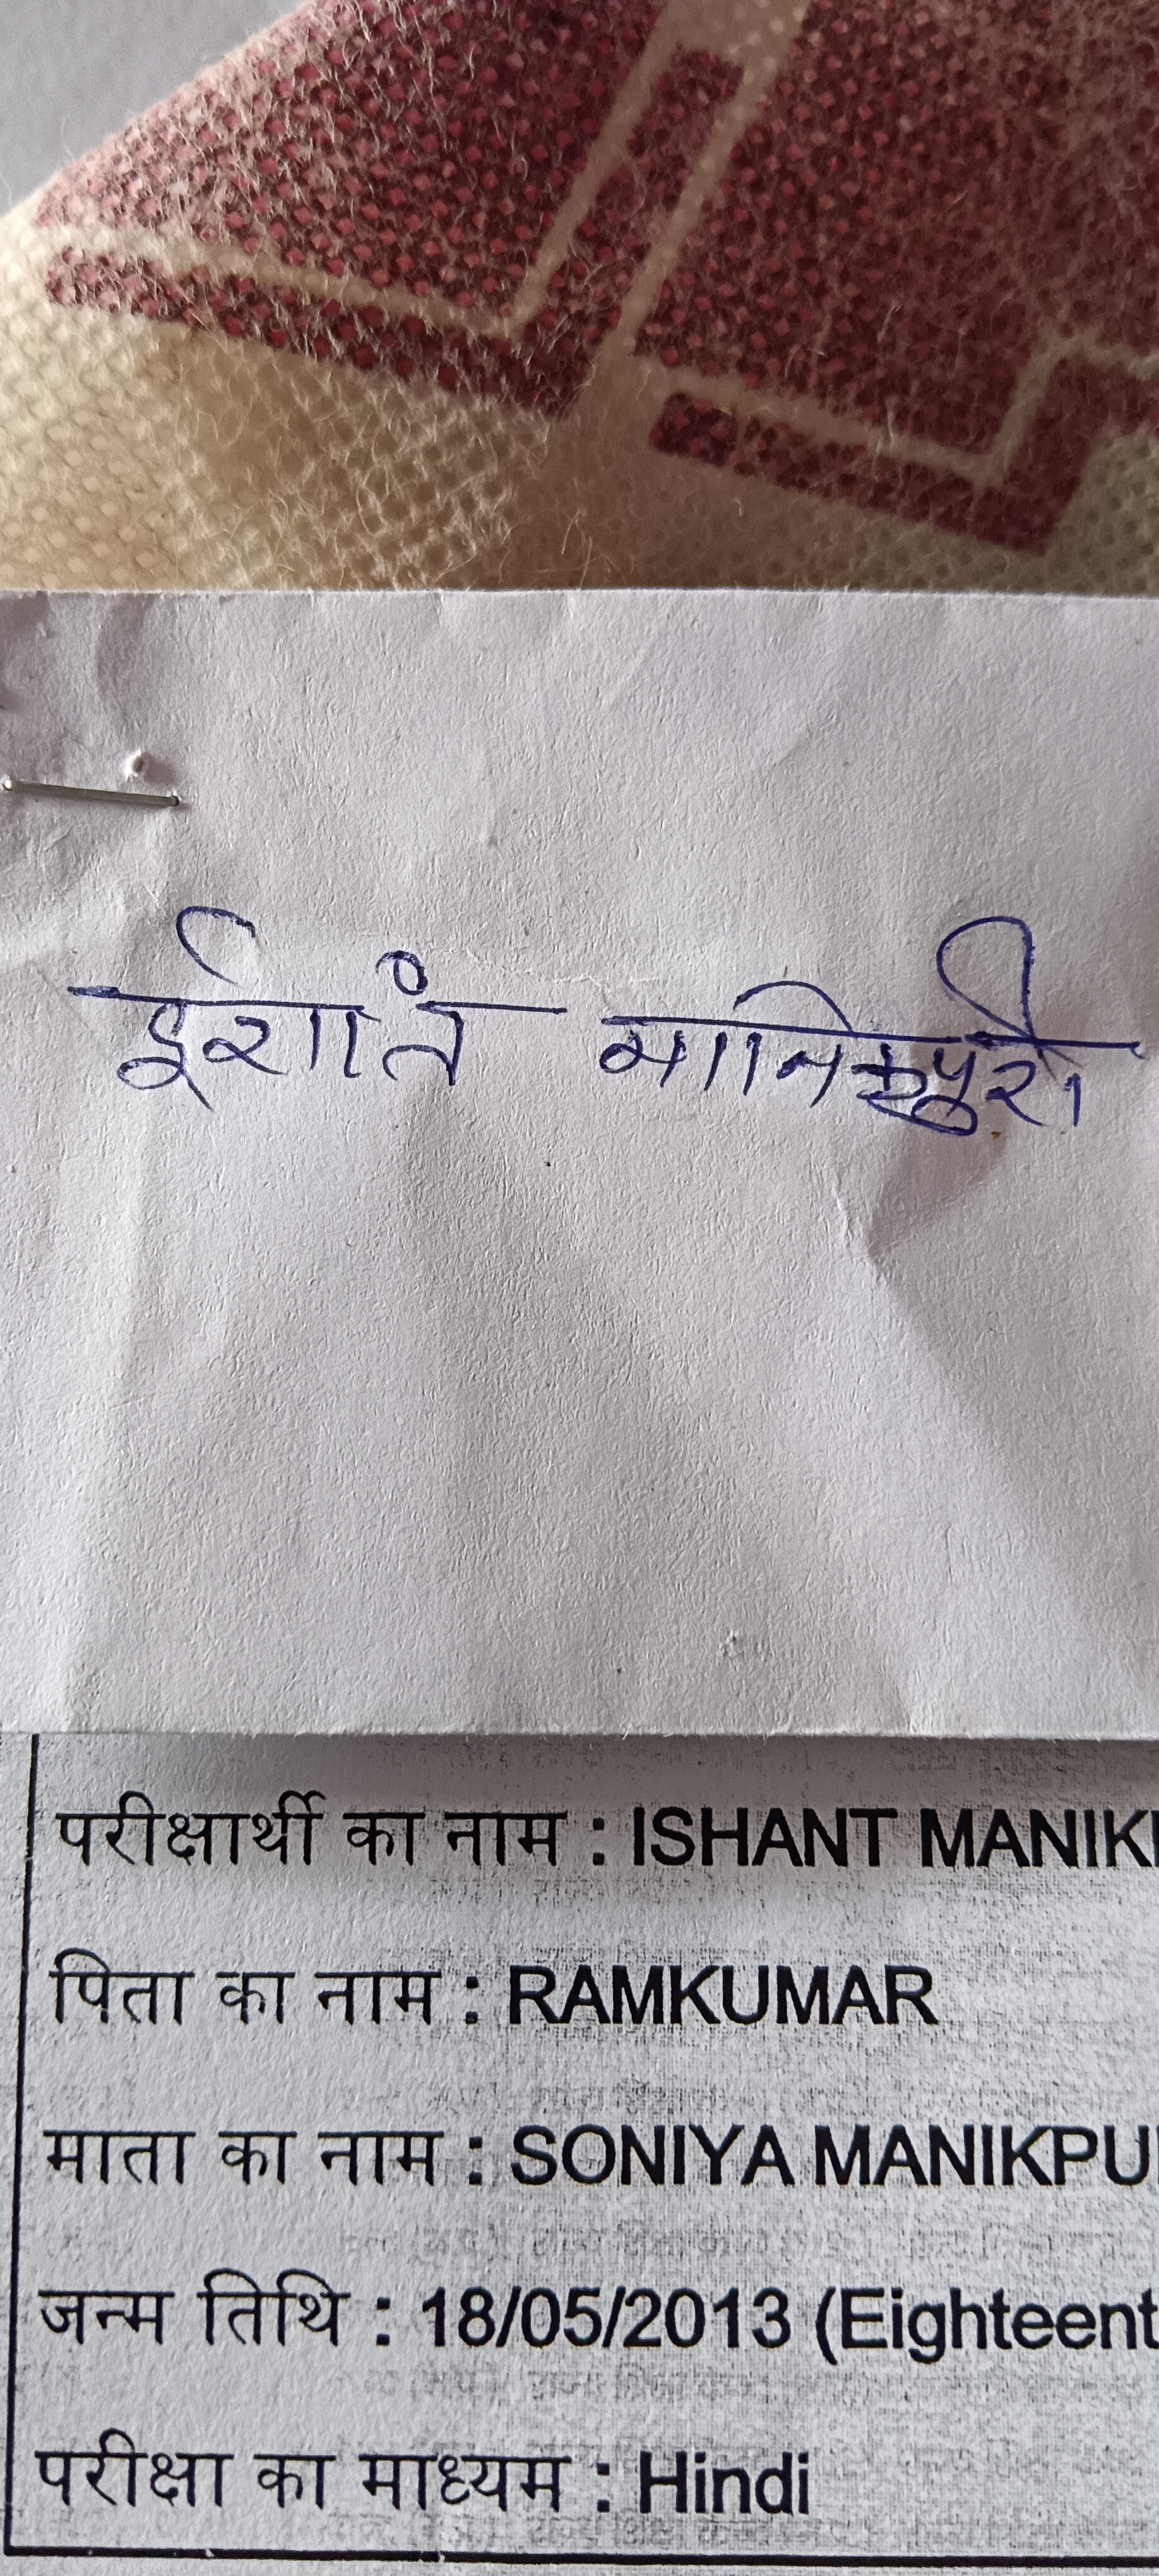 ईशांत मानिकपुरी
परीक्षार्थी का नाम : ISHANT MANIK
पिता का नाम : RAMKUMAR
माता का नाम : SONIYA MANIKPU
जन्म तिथि : 18/05/2013 (Eighteent
परीक्षा का माध्यम : Hindi